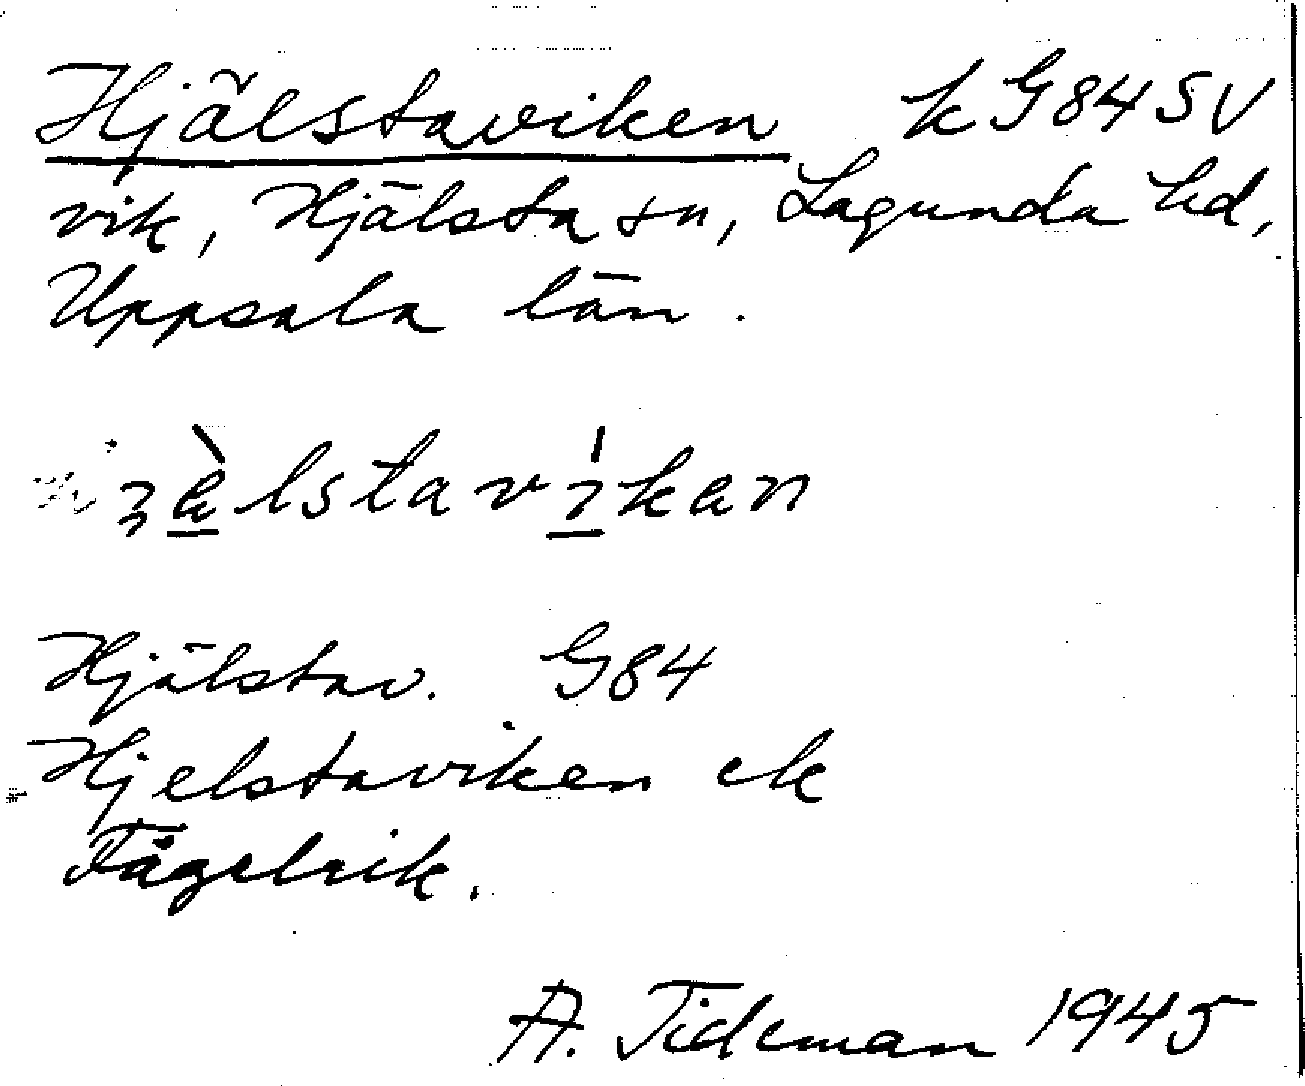 Hjälstaviken k G84 SV
vik, Hjälsta sn, Lagunda hd,
Uppsala län.
Hjälstav. G84
Hjelstaviken ek
Fågelrik.
A. Tideman 1945